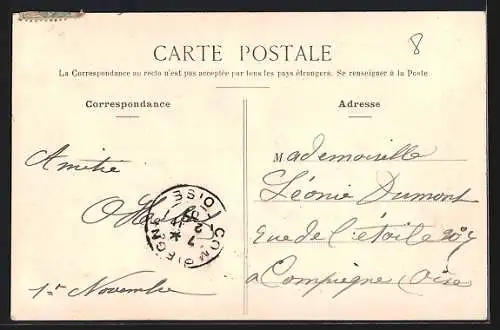 8
CARTE POSTALE
La Correspondance au recto n'est pas acceptée par tous les pays étrangers. Se renseigner à la Poste
Correspondance
Adresse
Amitié
1er Novembre
COMPIEGNE OISE
Mademoiselle
Léonie Dumont
Rue de l'étoile
a Compiegne Oise